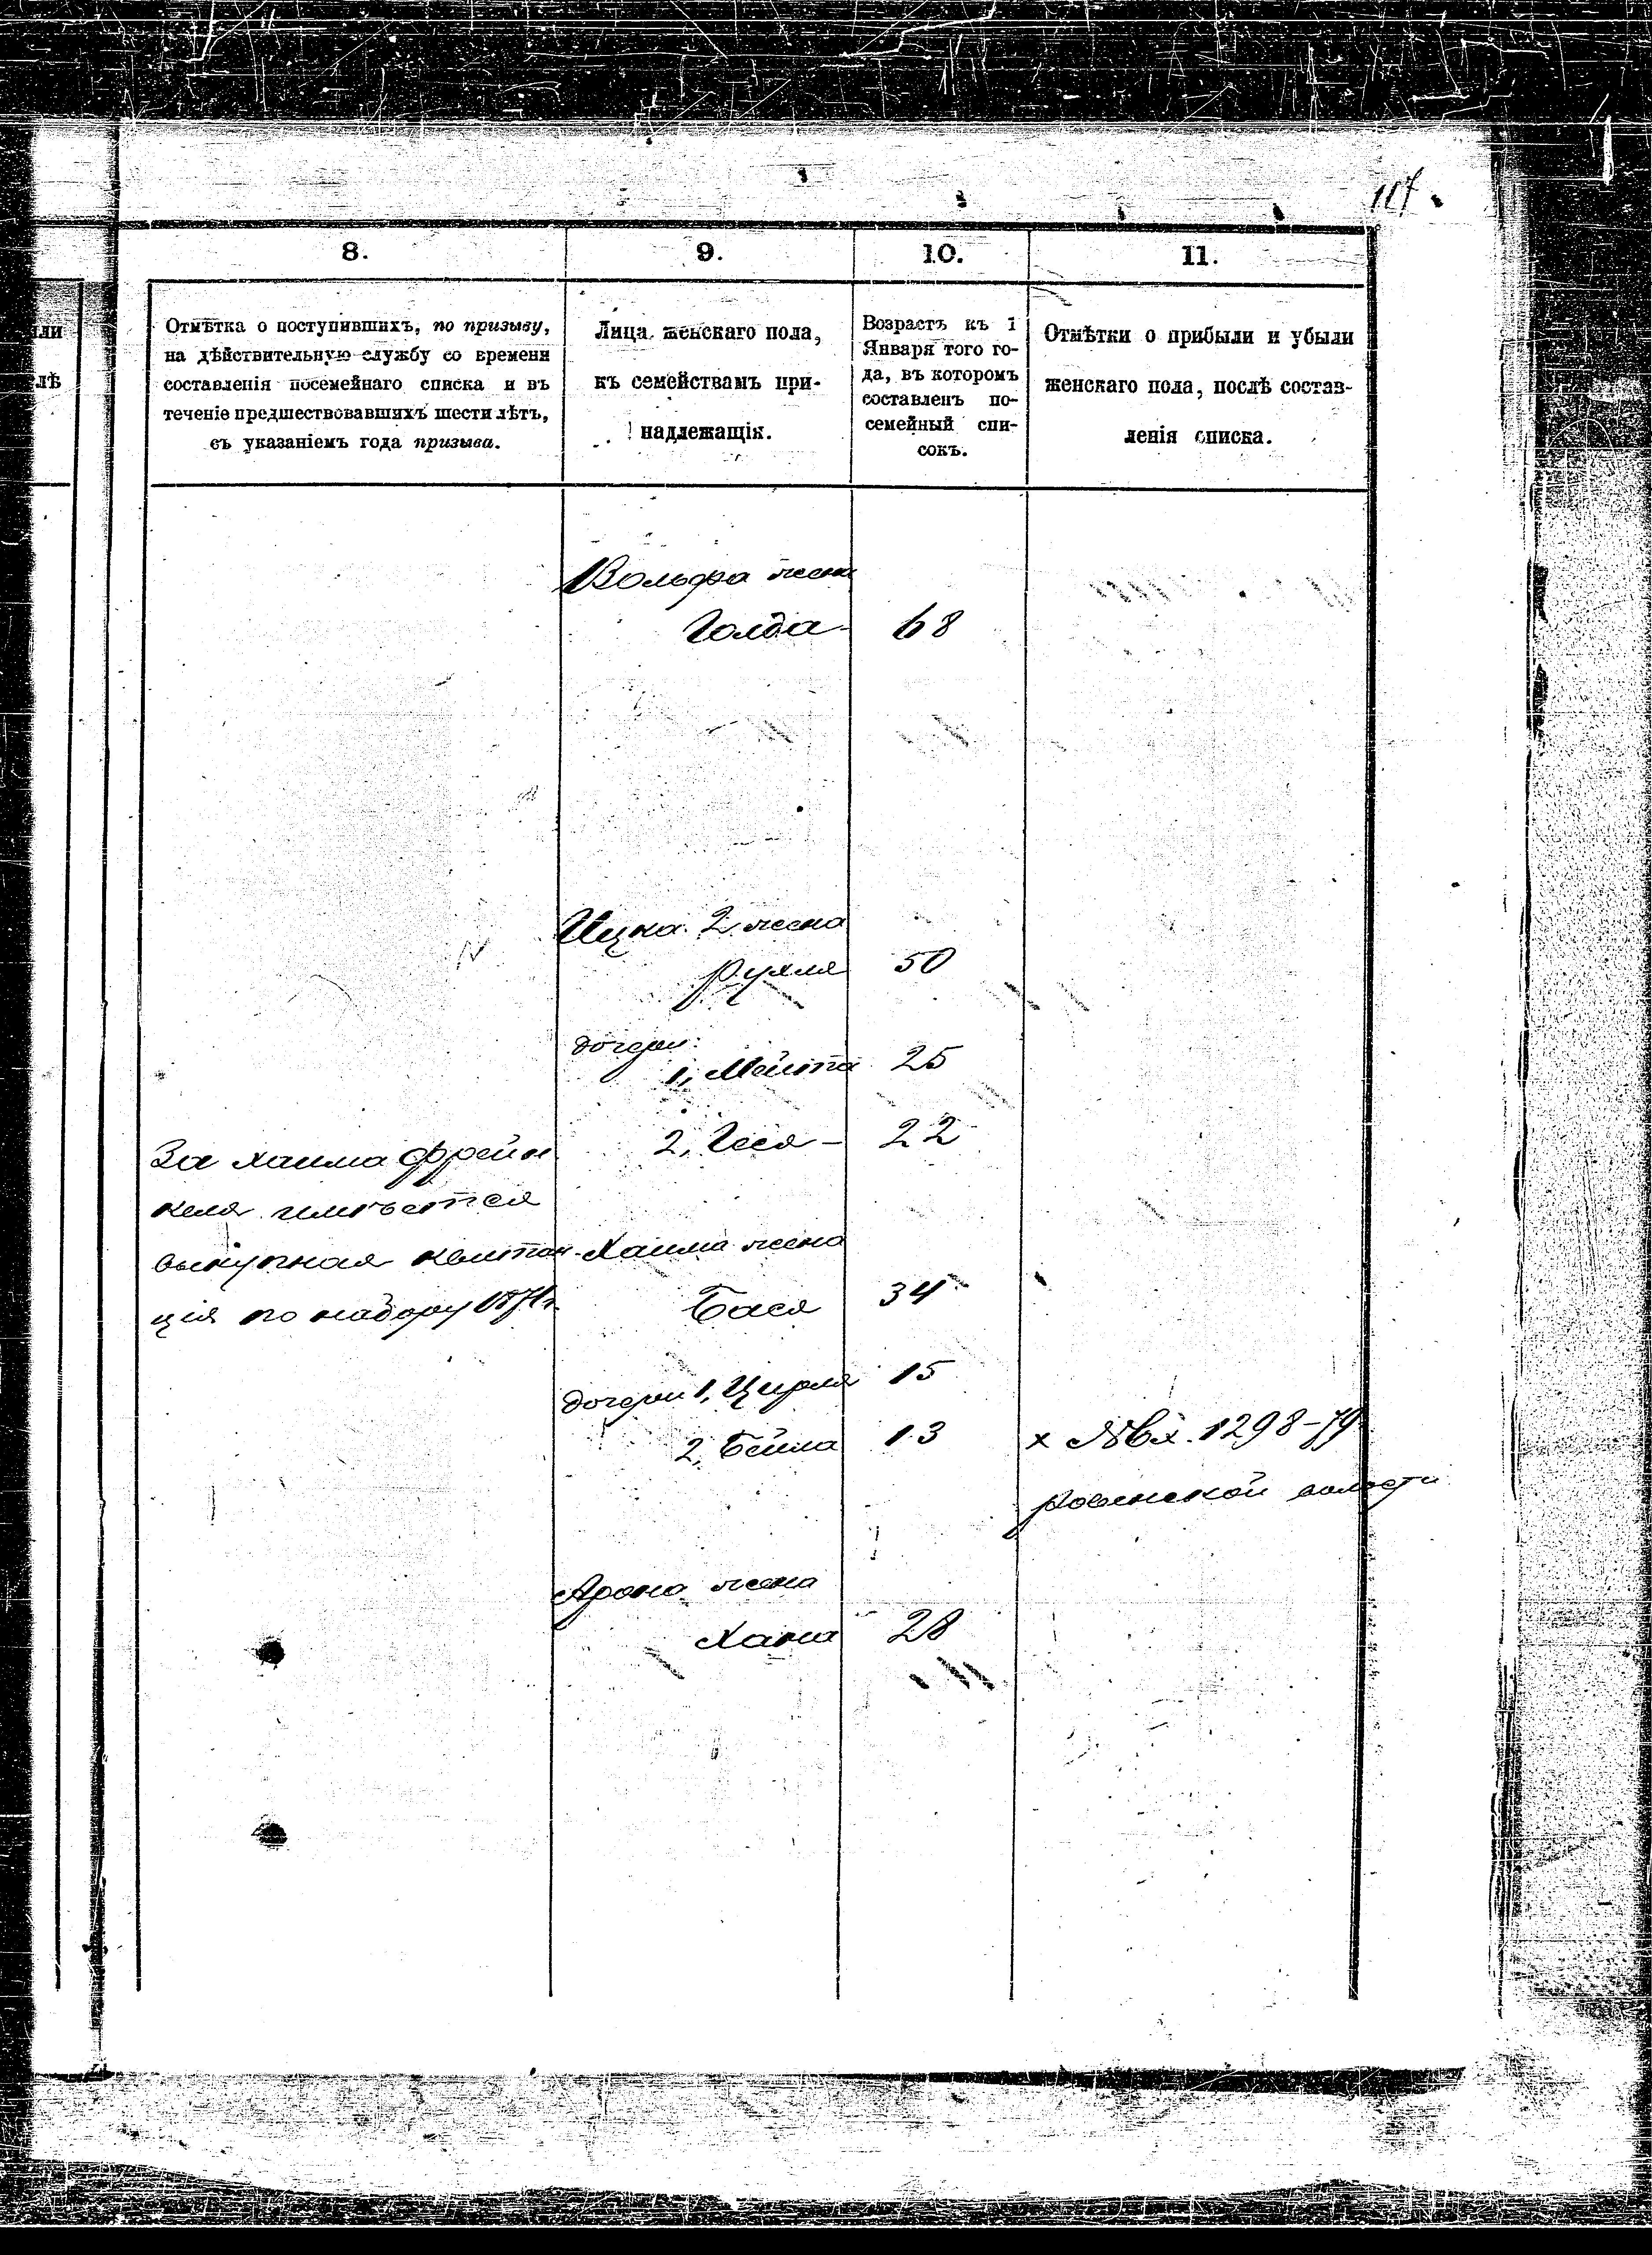 107
8.
9.
10.
11.
или
лѣ
Отмѣтка о поступившихъ, по призыву,
на дѣйствительную службу со времени
составленія посемейнаго списка и въ
теченіе предшествовавшихъ шести лѣтъ,
съ указаніемъ года призыва.
Лица женскаго пола,
къ семействамъ при-
надлежащія.
Возрастъ къ 1
Января того го-
да, въ которомъ
составленъ по-
семейный спи-
сокъ.
Отмѣтки о прибыли и убыли
женскаго пола, послѣ состав-
ленія списка.
Вольфа жена
Голда 68
Ицка 2 жена
Рухля 50
дочери:
1, Мейта 25
2, Гися - 22
За Хаима Френ
келя имѣется
выкупная квитан-
ція по набору 1871г.
Хаима жена
Бася 34
дочери 1, Цирля 15
2, Бейла 13
x № Вх. 1298-79
Ровенской волости
Арона жена
Хана 28